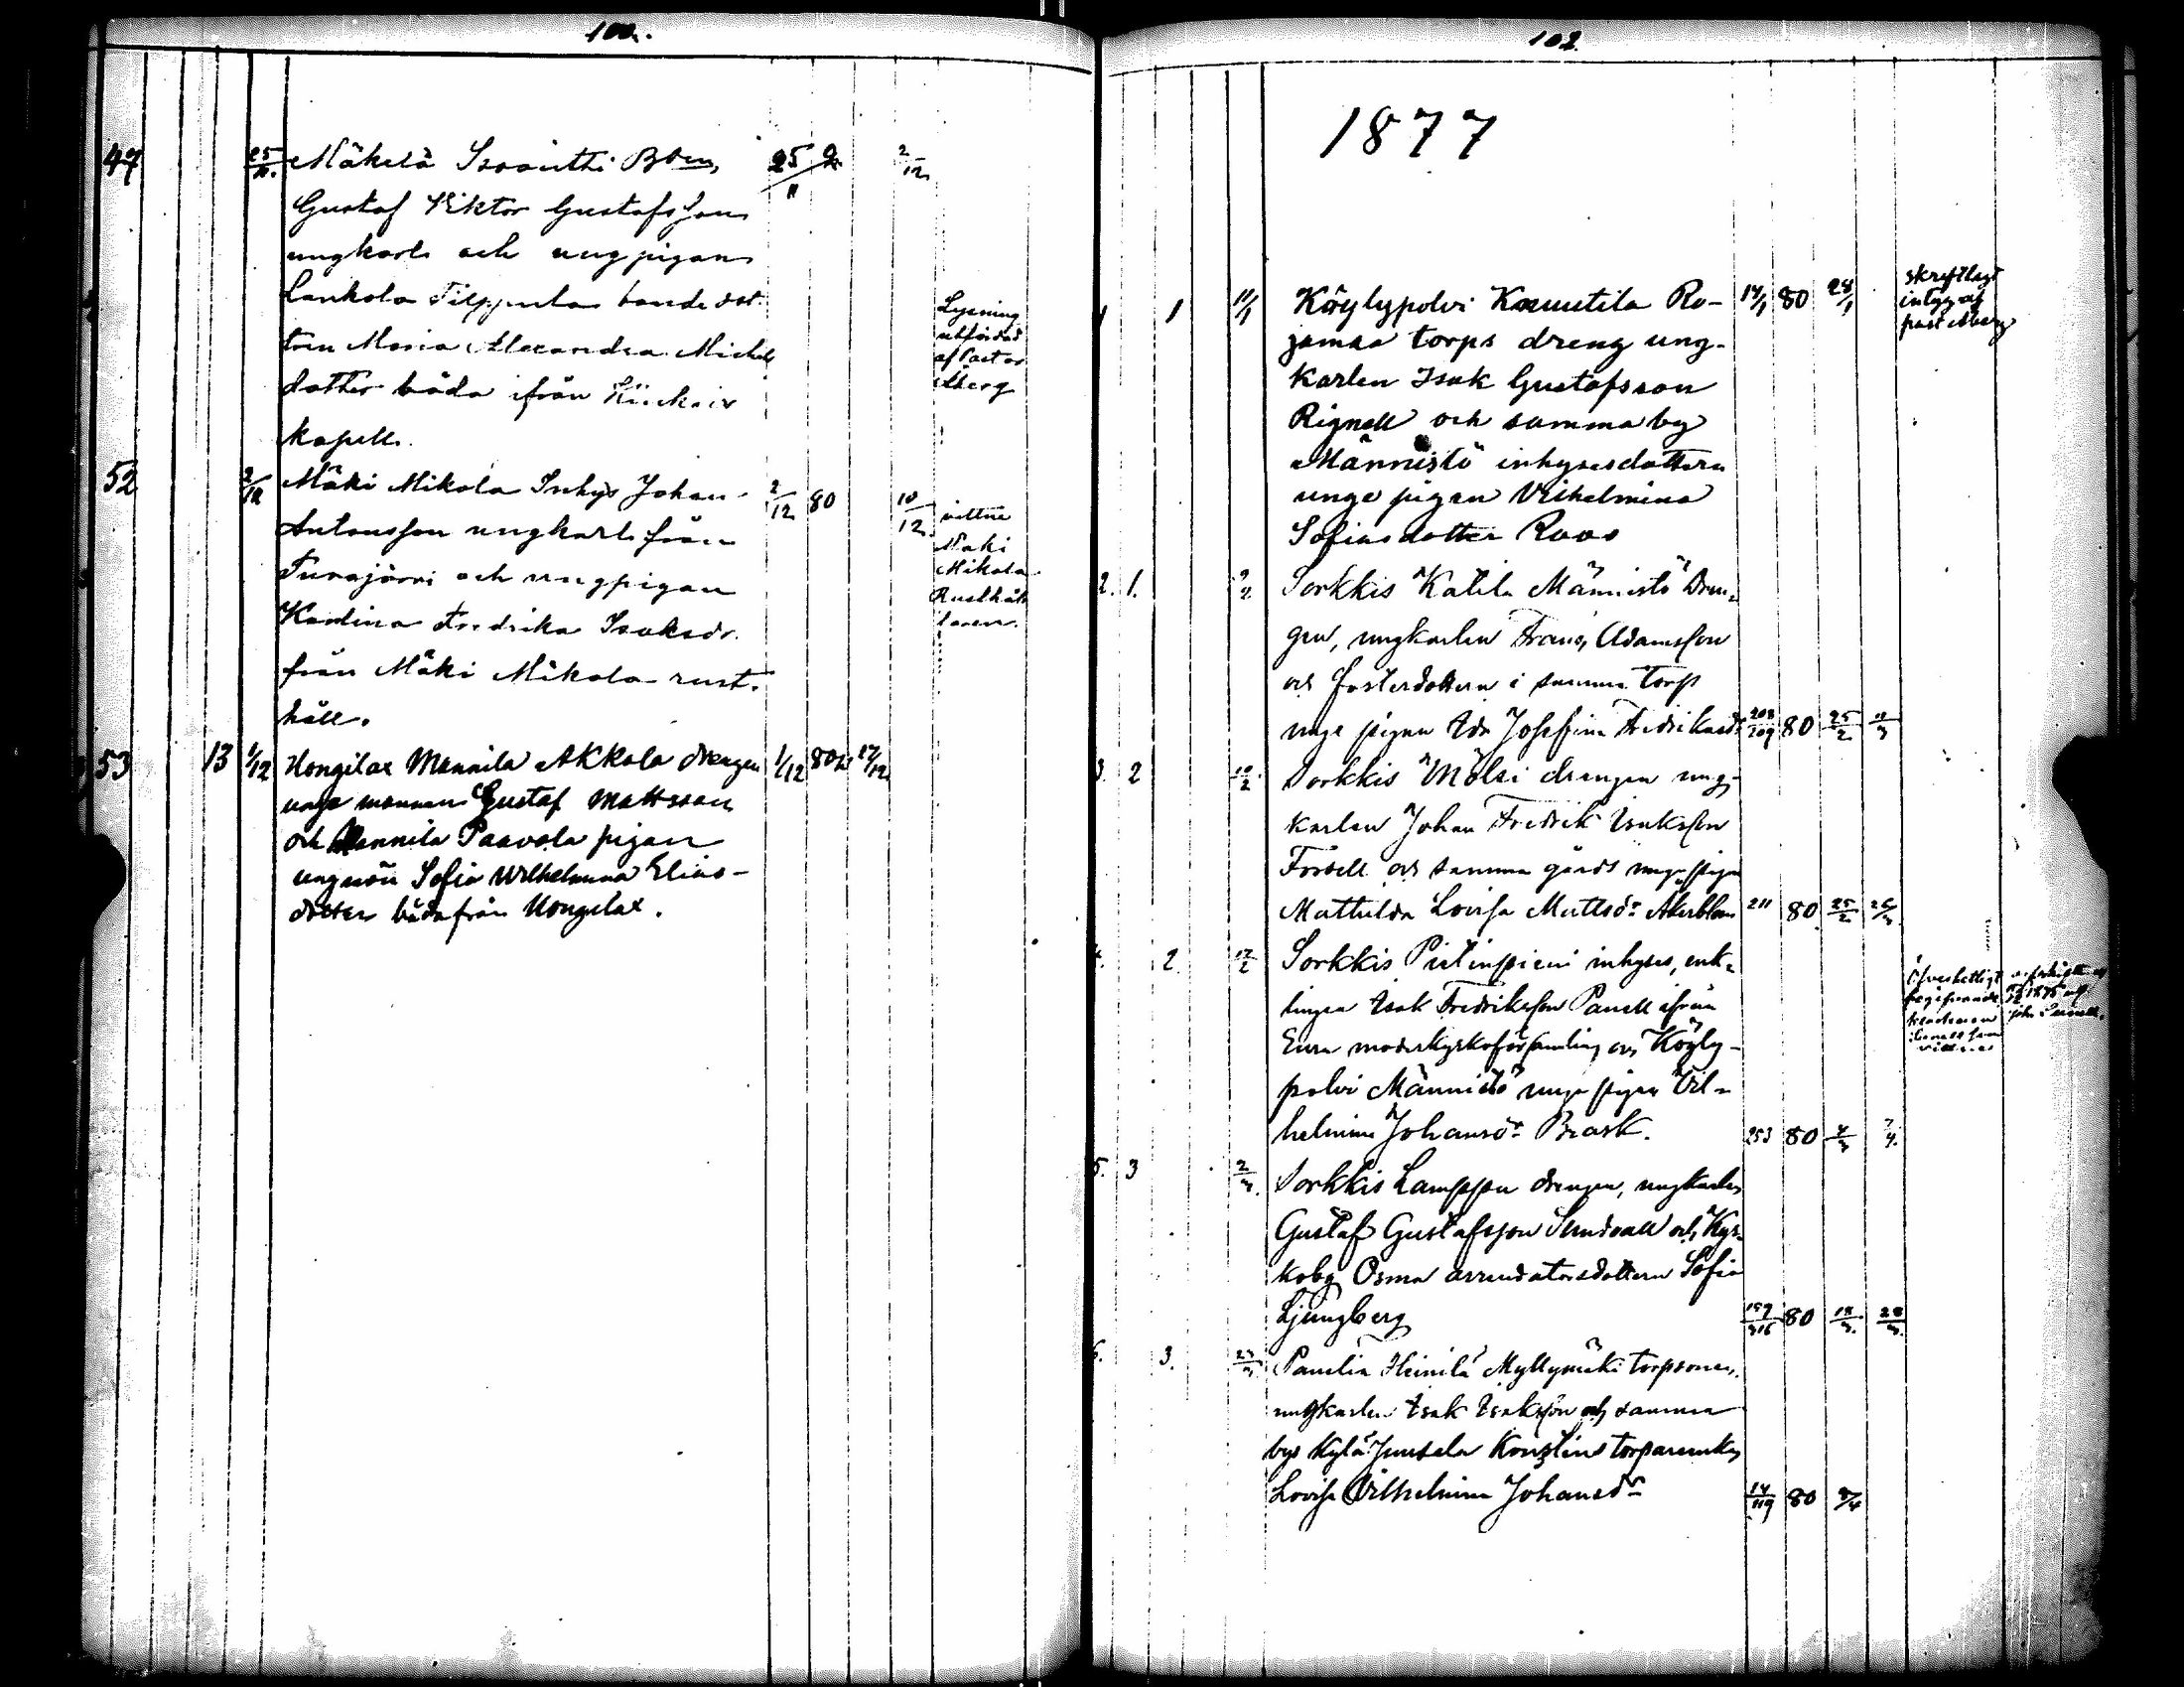 100.
47 25/11. Mäkelä Bden 25/11 2/12
Gustaf Viktor Gustafsson
ungkarl och ungpigan
Lankola Tilppula bonde dot-
tren Maria Alexandra Michels
dotter båda ifrån
kapell.
Lysning
utfärdad
af Pastor
Åberg
52 2/12 Mäki Mikola Inhys Johan 2/12 80 10/12
Antonsson ungkarl från
och ungpigan
Karolina Fredrika Isaksdr
från Mäki Mikola rust-
håll.
vittne
Mäki
Mikola
Rusthål-
laren.
53 13 1/12 Hongilax Mannila Akkola drengen 1/12 80 17/12
unge mannen Gustaf Mattsson
och Mannila Paavola pigan
ungmön Sofia Wilhelmina Elias-
dotter båda från Hongilax.
102.
1877
1 1 11/1 Köylypolvi Kauutila Ro- 14/1 80 28/1
jamaa torps dreng ung-
karlen Isak Gustafsson
Rignell och samma by
Männistö inhysesdottern
unge pigan Vilhelmina
Sofiasdotter Roos
skriftligt
intyg af
past Åberg
2. 1. 9/2 Sorkkis Katila Männistö Dren-
gen, ungkarlen Frans Adamsson
och fosterdottern i samma torp
unge pigan Ida Josefina Fredriksdr 209 80 25/2 11/3
3. 2 10/2 Sorkkis Mölsi drengen ung-
karlen Johan Fredrik Isaksson
Forsell och samma gårds unge pigan
Mathilda Lovisa Mattsdr Åkerblom 211 80 25/2 26/3
4. 2. 17/2 Sorkkis Pietinpieni inhyses, enk-
lingen Isak Fredriksson Panell ifrån
Eura moderkyrkoförsamling och Köyly-
polvi Männistö unge pigan Vil-
helmina Johansdr Brask. 253 80 4/3 7/4.
5. 3 2/3. Sorkkis Lamppu drengen, ungkarlen
Gustaf Gustafsson Sundvall och Kyr-
koby Osma arrendatorsdottern Sofia
Ljungberg 157/316 80 18/3. 28/3.
6. 3. 23/3 Panelia Heinilä Myllymäki torpsonen,
ungkarlen Isak Isaksson och samma
bys Kylä-Juusela torparenkan
Lovisa Vilhelmina Johansdr 14/119 80 8/4